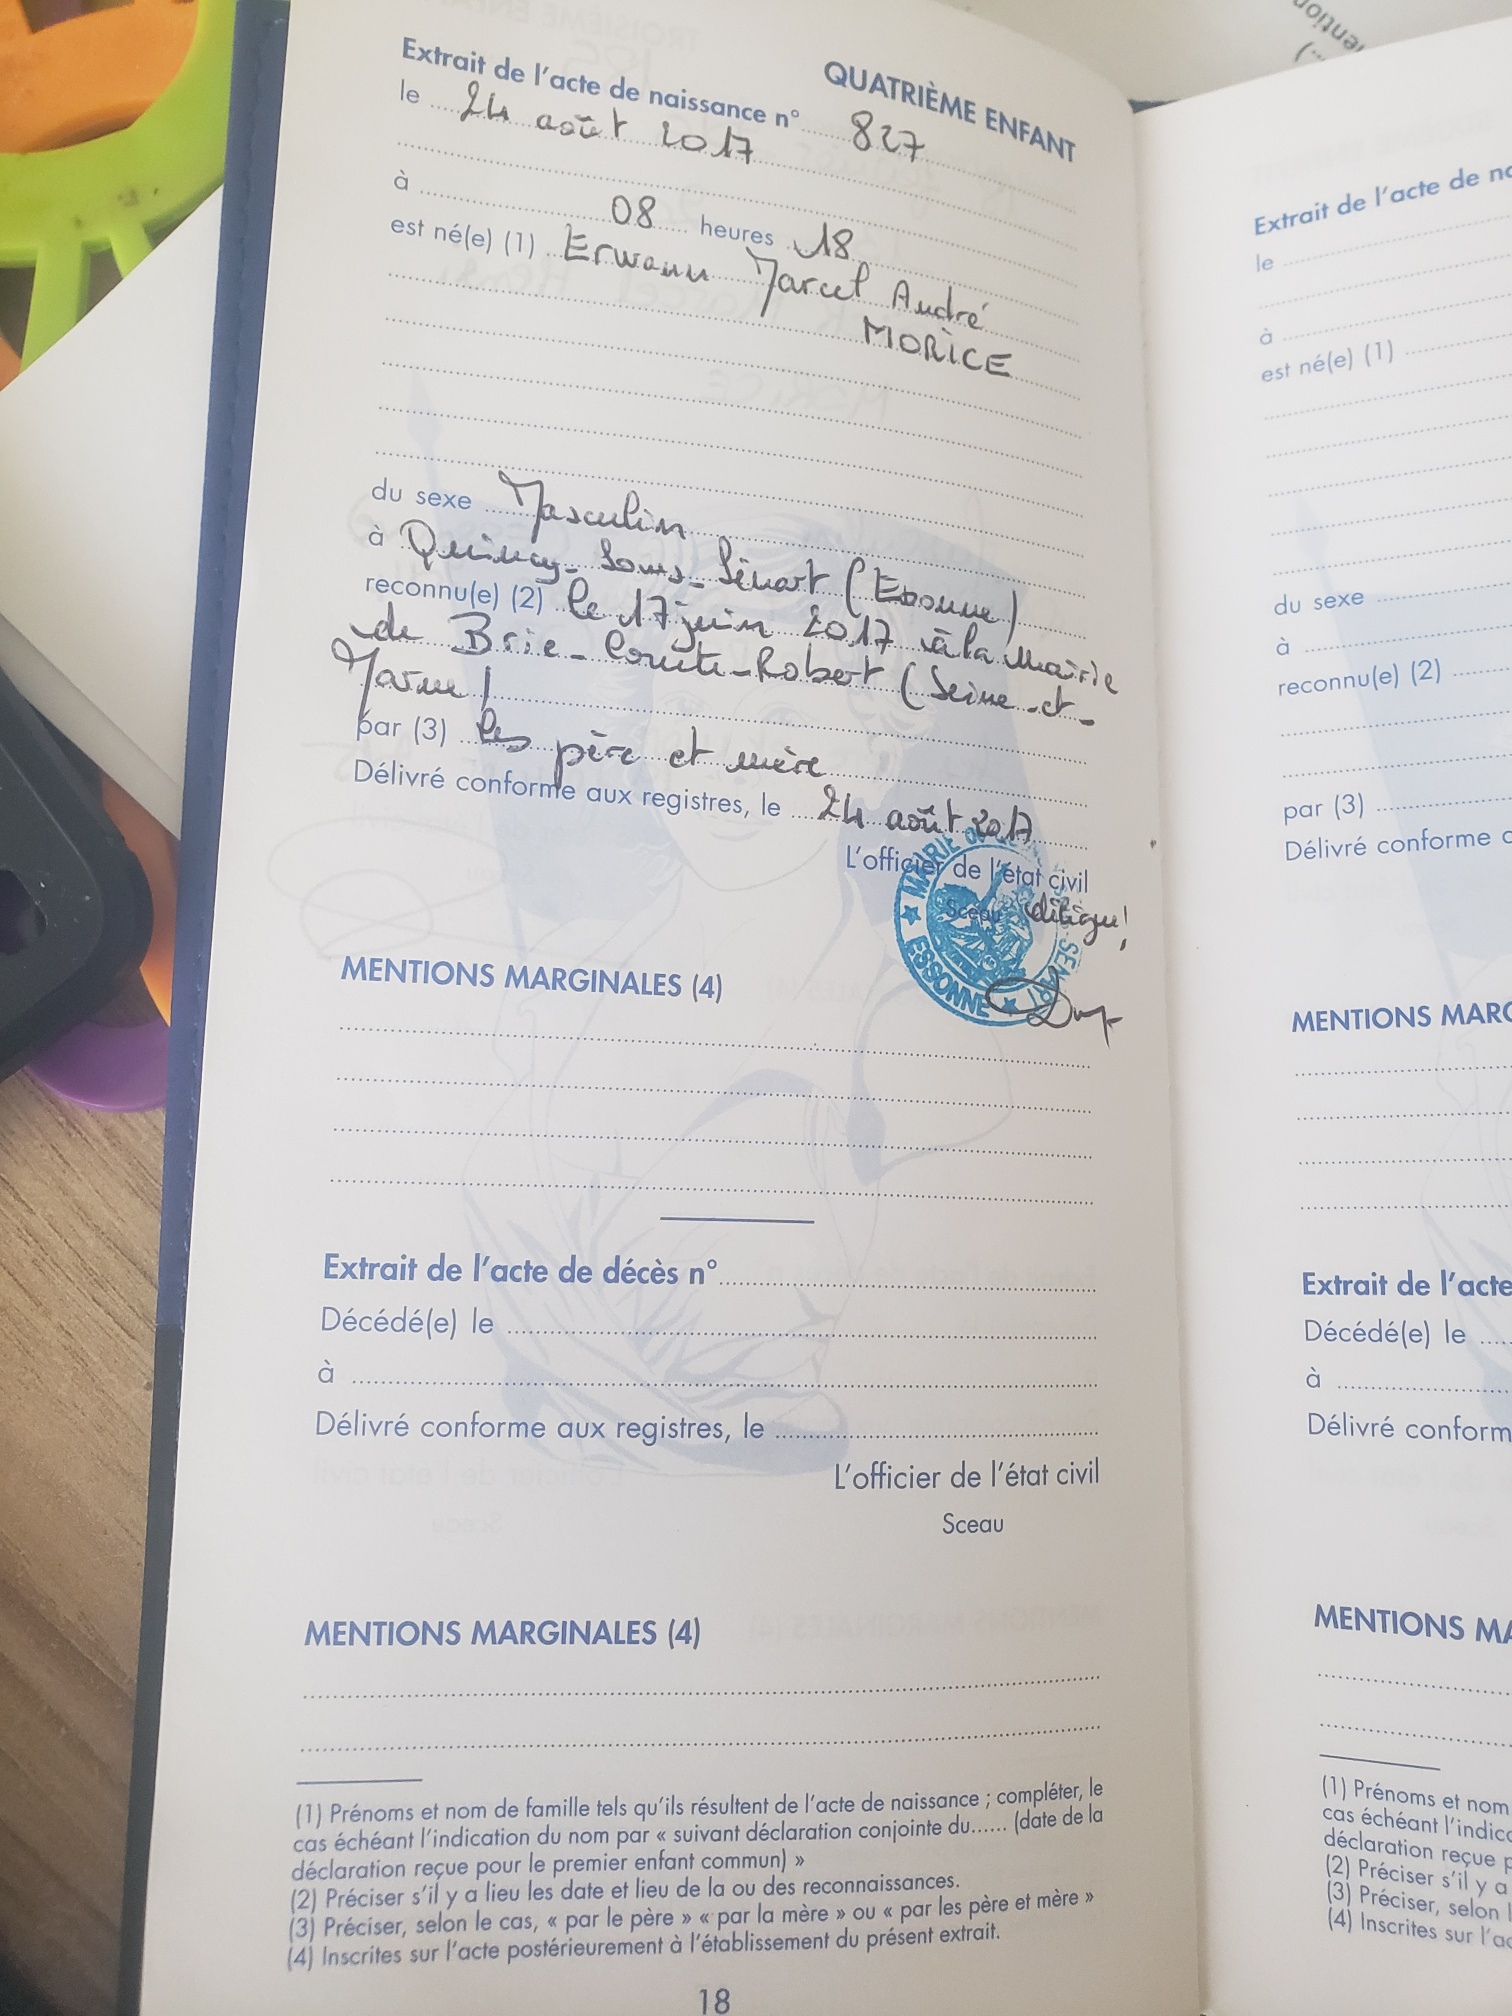 QUATRIÈME ENFANT
Extrait de l'acte de naissance n° 827
le 24 août 2017
à 08 heures 18
est né(e) (1) Erwann Marcel André
MORICE
du sexe Masculin
à Quincy-Sous-Sénart (Essonne)
reconnu(e) (2) le 17 juin 2017 à la Mairie
de Brie-Comte-Robert (Seine-et-
Marne)
par (3) les père et mère
Délivré conforme aux registres, le 24 août 2017
L'officier de l'état civil
Sceau délégué
MAIRIE SÉNART
ESSONNE
MENTIONS MARGINALES (4)
Extrait de l'acte de décès n°
Décédé(e) le
à
Délivré conforme aux registres, le
L'officier de l'état civil
Sceau
MENTIONS MARGINALES (4)
(1) Prénoms et nom de famille tels qu'ils résultent de l'acte de naissance ; compléter, le
cas échéant l'indication du nom par « suivant déclaration conjointe du...... (date de la
déclaration reçue pour le premier enfant commun) »
(2) Préciser s'il y a lieu les date et lieu de la ou des reconnaissances.
(3) Préciser, selon le cas, « par le père » « par la mère » ou « par les père et mère »
(4) Inscrites sur l'acte postérieurement à l'établissement du présent extrait.
18
Extrait de l'acte de
le
à
est né(e) (1)
du sexe
à
reconnu(e) (2)
par (3)
Délivré conforme
MENTIONS
Extrait de l'acte
Décédé(e) le
à
Délivré
MENTIONS
(1) Prénoms et nom
cas échéant
déclaration reçue
(2) Préciser s'il y a
(3) Préciser, selon
(4) Inscrites sur